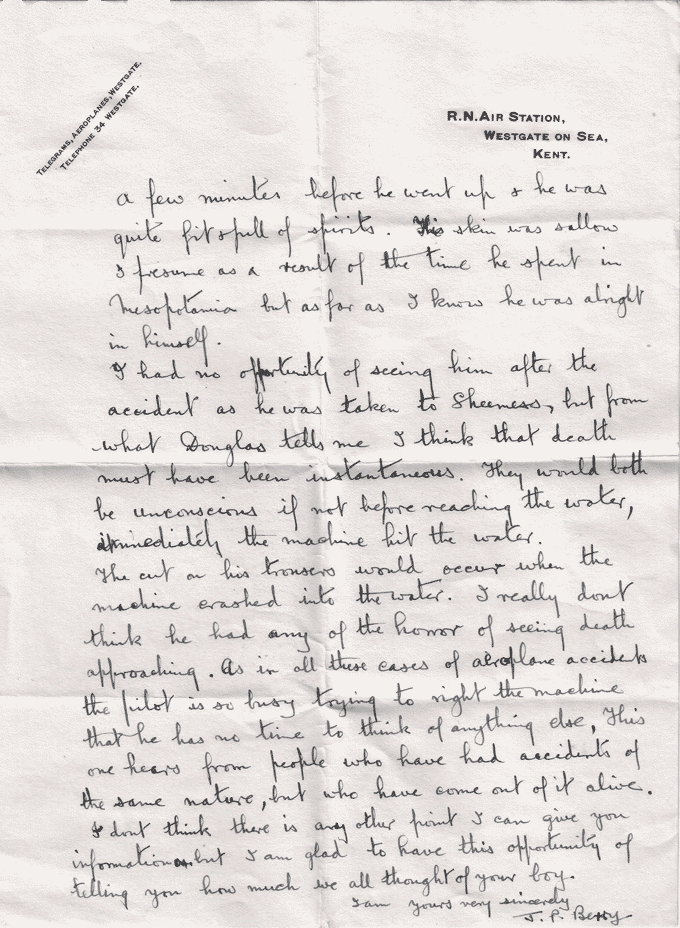 TELEGRAMS, AEROPLANES, WESTGATE.
TELEPHONE 34 WESTGATE.
R.N. AIR STATION,
WESTGATE ON SEA,
KENT.
a few minutes before he went up & he was
quite fit & full of spirits. His skin was sallow
I presume as a result of the time he spent in
Mesopotamia but as far as I know he was alright
in himself.
I had no opportunity of seeing him after the
accident as he was taken to Sheerness, but from
what Douglas tells me I think that death
must have been instantaneous. They would both
be unconscious if not before reaching the water,
immediately the machine hit the water.
The cut on his trousers would occur when the
machine crashed into the water. I really dont
think he had any of the horror of seeing death
approaching. As in all these cases of aeroplane accidents
the pilot is so busy trying to right the machine
that he has no time to think of anything else, This
one hears from people who have had accidents of
the same nature, but who have come out of it alive.
I dont think there is any other point I can give you
information on but I am glad to have this opportunity of
telling you how much we all thought of your boy.
I am yours very sincerely
J. P. Berry